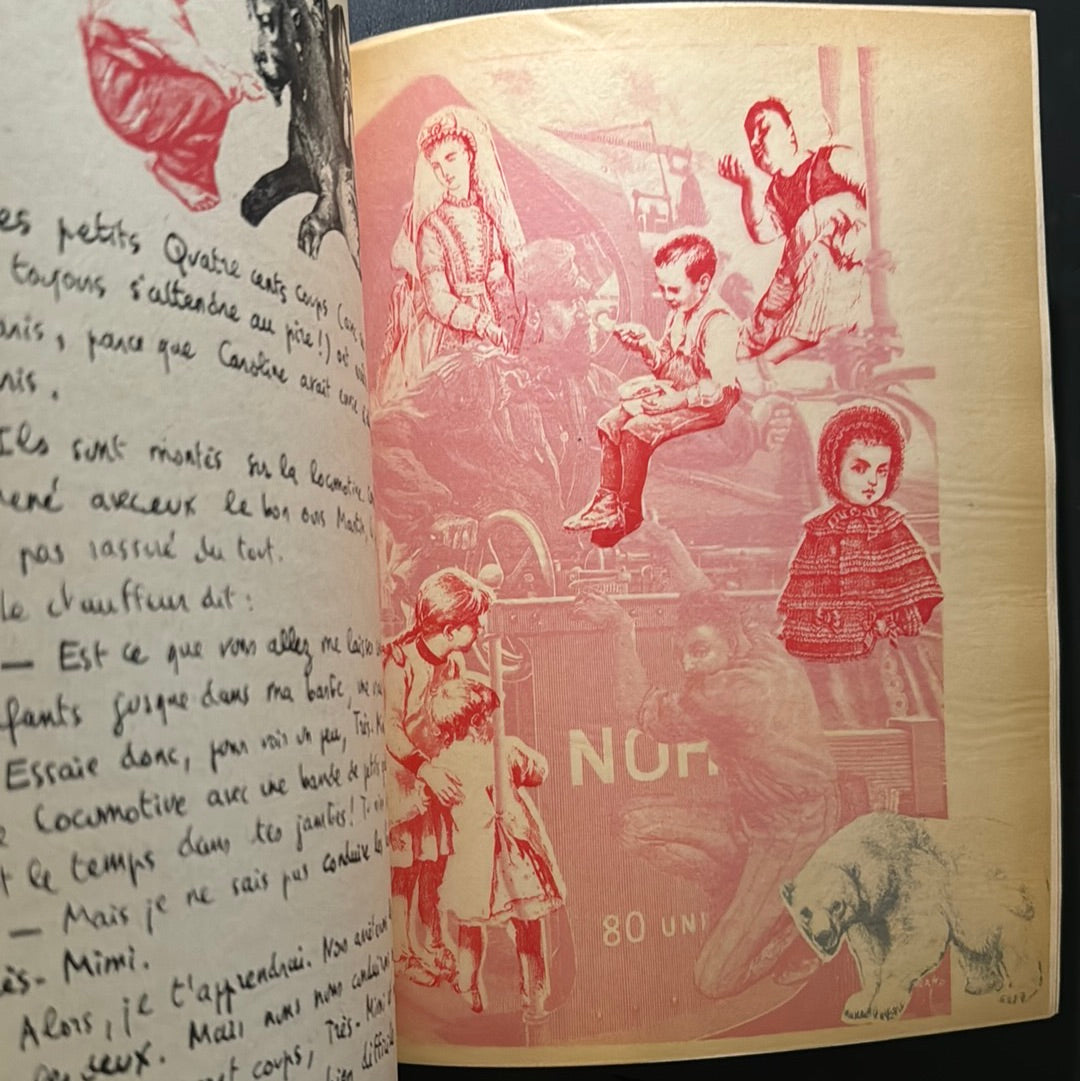 es petits Quatre cents coups (
toujours s'attendre au pire!) ont
anis, parce que Caroline avait
nis.
Ils sont montés sur la locomotive
ené avec eux le bon ours Martin,
pas rassuré du tout.
Le chauffeur dit:
— Est ce que vous allez me laisser
fants jusque dans ma barbe, une
Essaie donc, pour voir un peu, Très-
Locomotive avec une bande de petits
t le temps dans tes jambes! Tu
— Mais je ne sais pas conduire les
ès-Mimi.
Alors, je t'apprendrai. Nous
deux. Mais nous nous conduirons
et coups, Très-Mimi
bien difficile
NOR
80 UNI